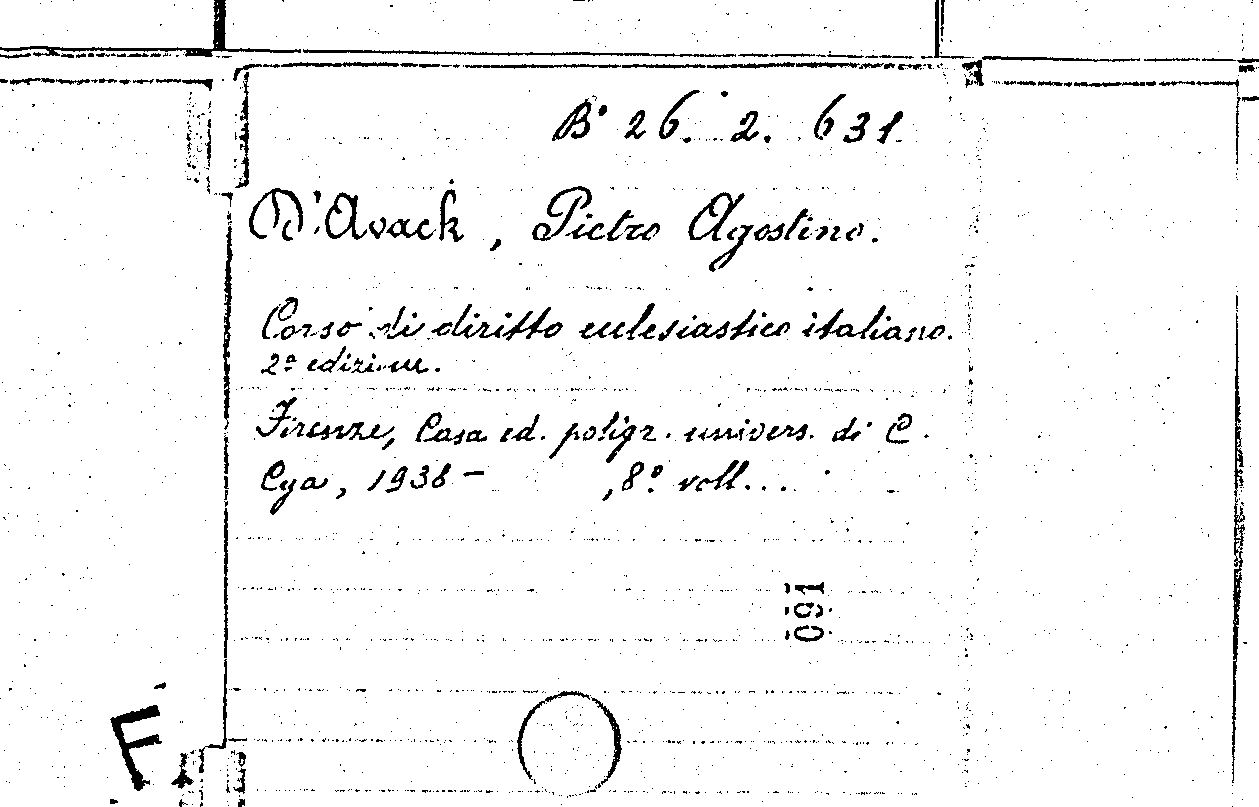 B° 26. 2. 631
D'Avack, Pietro Agostino.
Corso di diritto ecclesiastico italiano.
2ª edizione.
Firenze, Casa ed. poligr. univers. di C.
Cya, 1938 - , 8°. voll...
091
F.